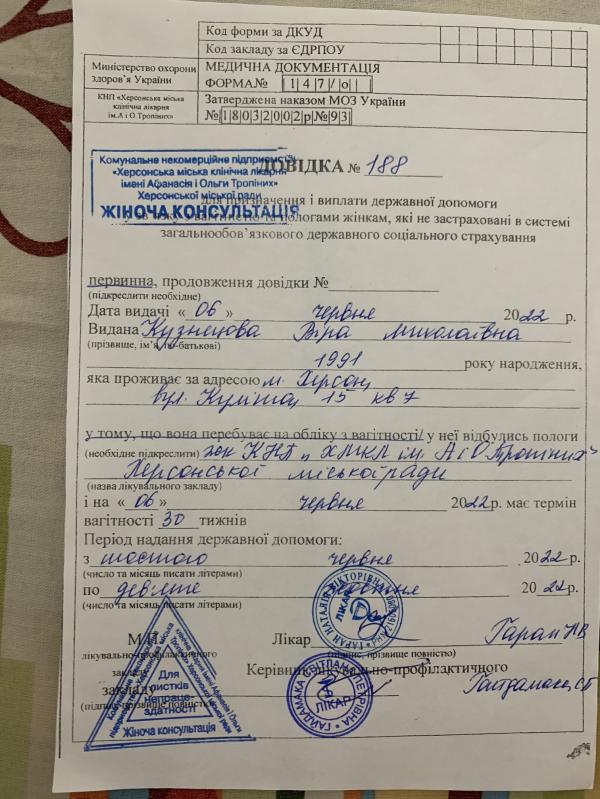 Код форми за ДКУД
Код закладу за ЄДРПОУ
Міністерство охорони
здоров'я України
МЕДИЧНА ДОКУМЕНТАЦІЯ
ФОРМА№ 147/о
КНП «Херсонська міська
клінічна лікарня
ім.А і О Тропіних»
Затверджена наказом МОЗ України
№18032002р№93
Комунальне некомерційне підприємство
«Херсонська міська клінічна лікарня
імені Афанасія і Ольги Тропіних»
Херсонської міської ради
ЖІНОЧА КОНСУЛЬТАЦІЯ
ДОВІДКА № 188
для призначення і виплати державної допомоги
у зв'язку з вагітністю та пологами жінкам, які не застраховані в системі
загальнообов'язкового державного соціального страхування
первинна, продовження довідки №
(підкреслити необхідне)
Дата видачі « 06 » червня 2022р.
Видана Кузнецова Віра Миколаївна
(прізвище, ім'я, по-батькові)
1991 року народження,
яка проживає за адресою м. Херсон,
вул. Куліша, 15 кв 7
у тому, що вона перебуває на обліку з вагітності/ у неї відбулись пологи
(необхідне підкреслити) жк КНП „ ХМКЛ ім. А і О Тропіних"
Херсонської міської ради
(назва лікувального закладу)
і на « 06 » червня 2022р. має термін
вагітності 30 тижнів
Період надання державної допомоги:
з шостого червня 2022р.
(число та місяць писати літерами)
по 2022р.
(число та місяць писати літерами)
М.П. Лікар Гаран НВ
лікувально-профілактичного (підпис, прізвище повністю)
Керівник лікувально-профілактичного
закладу Гайдамака СП
(підпис, прізвище повністю)
ГАРАН НАТАЛІЯ ВІКТОРІВНА
ЛІКАР
Для
листків
непраце-
здатності
Жіноча консультація
ГАЙДАМАКА СВІТЛАНА ПЕТРІВНА
ЛІКАР